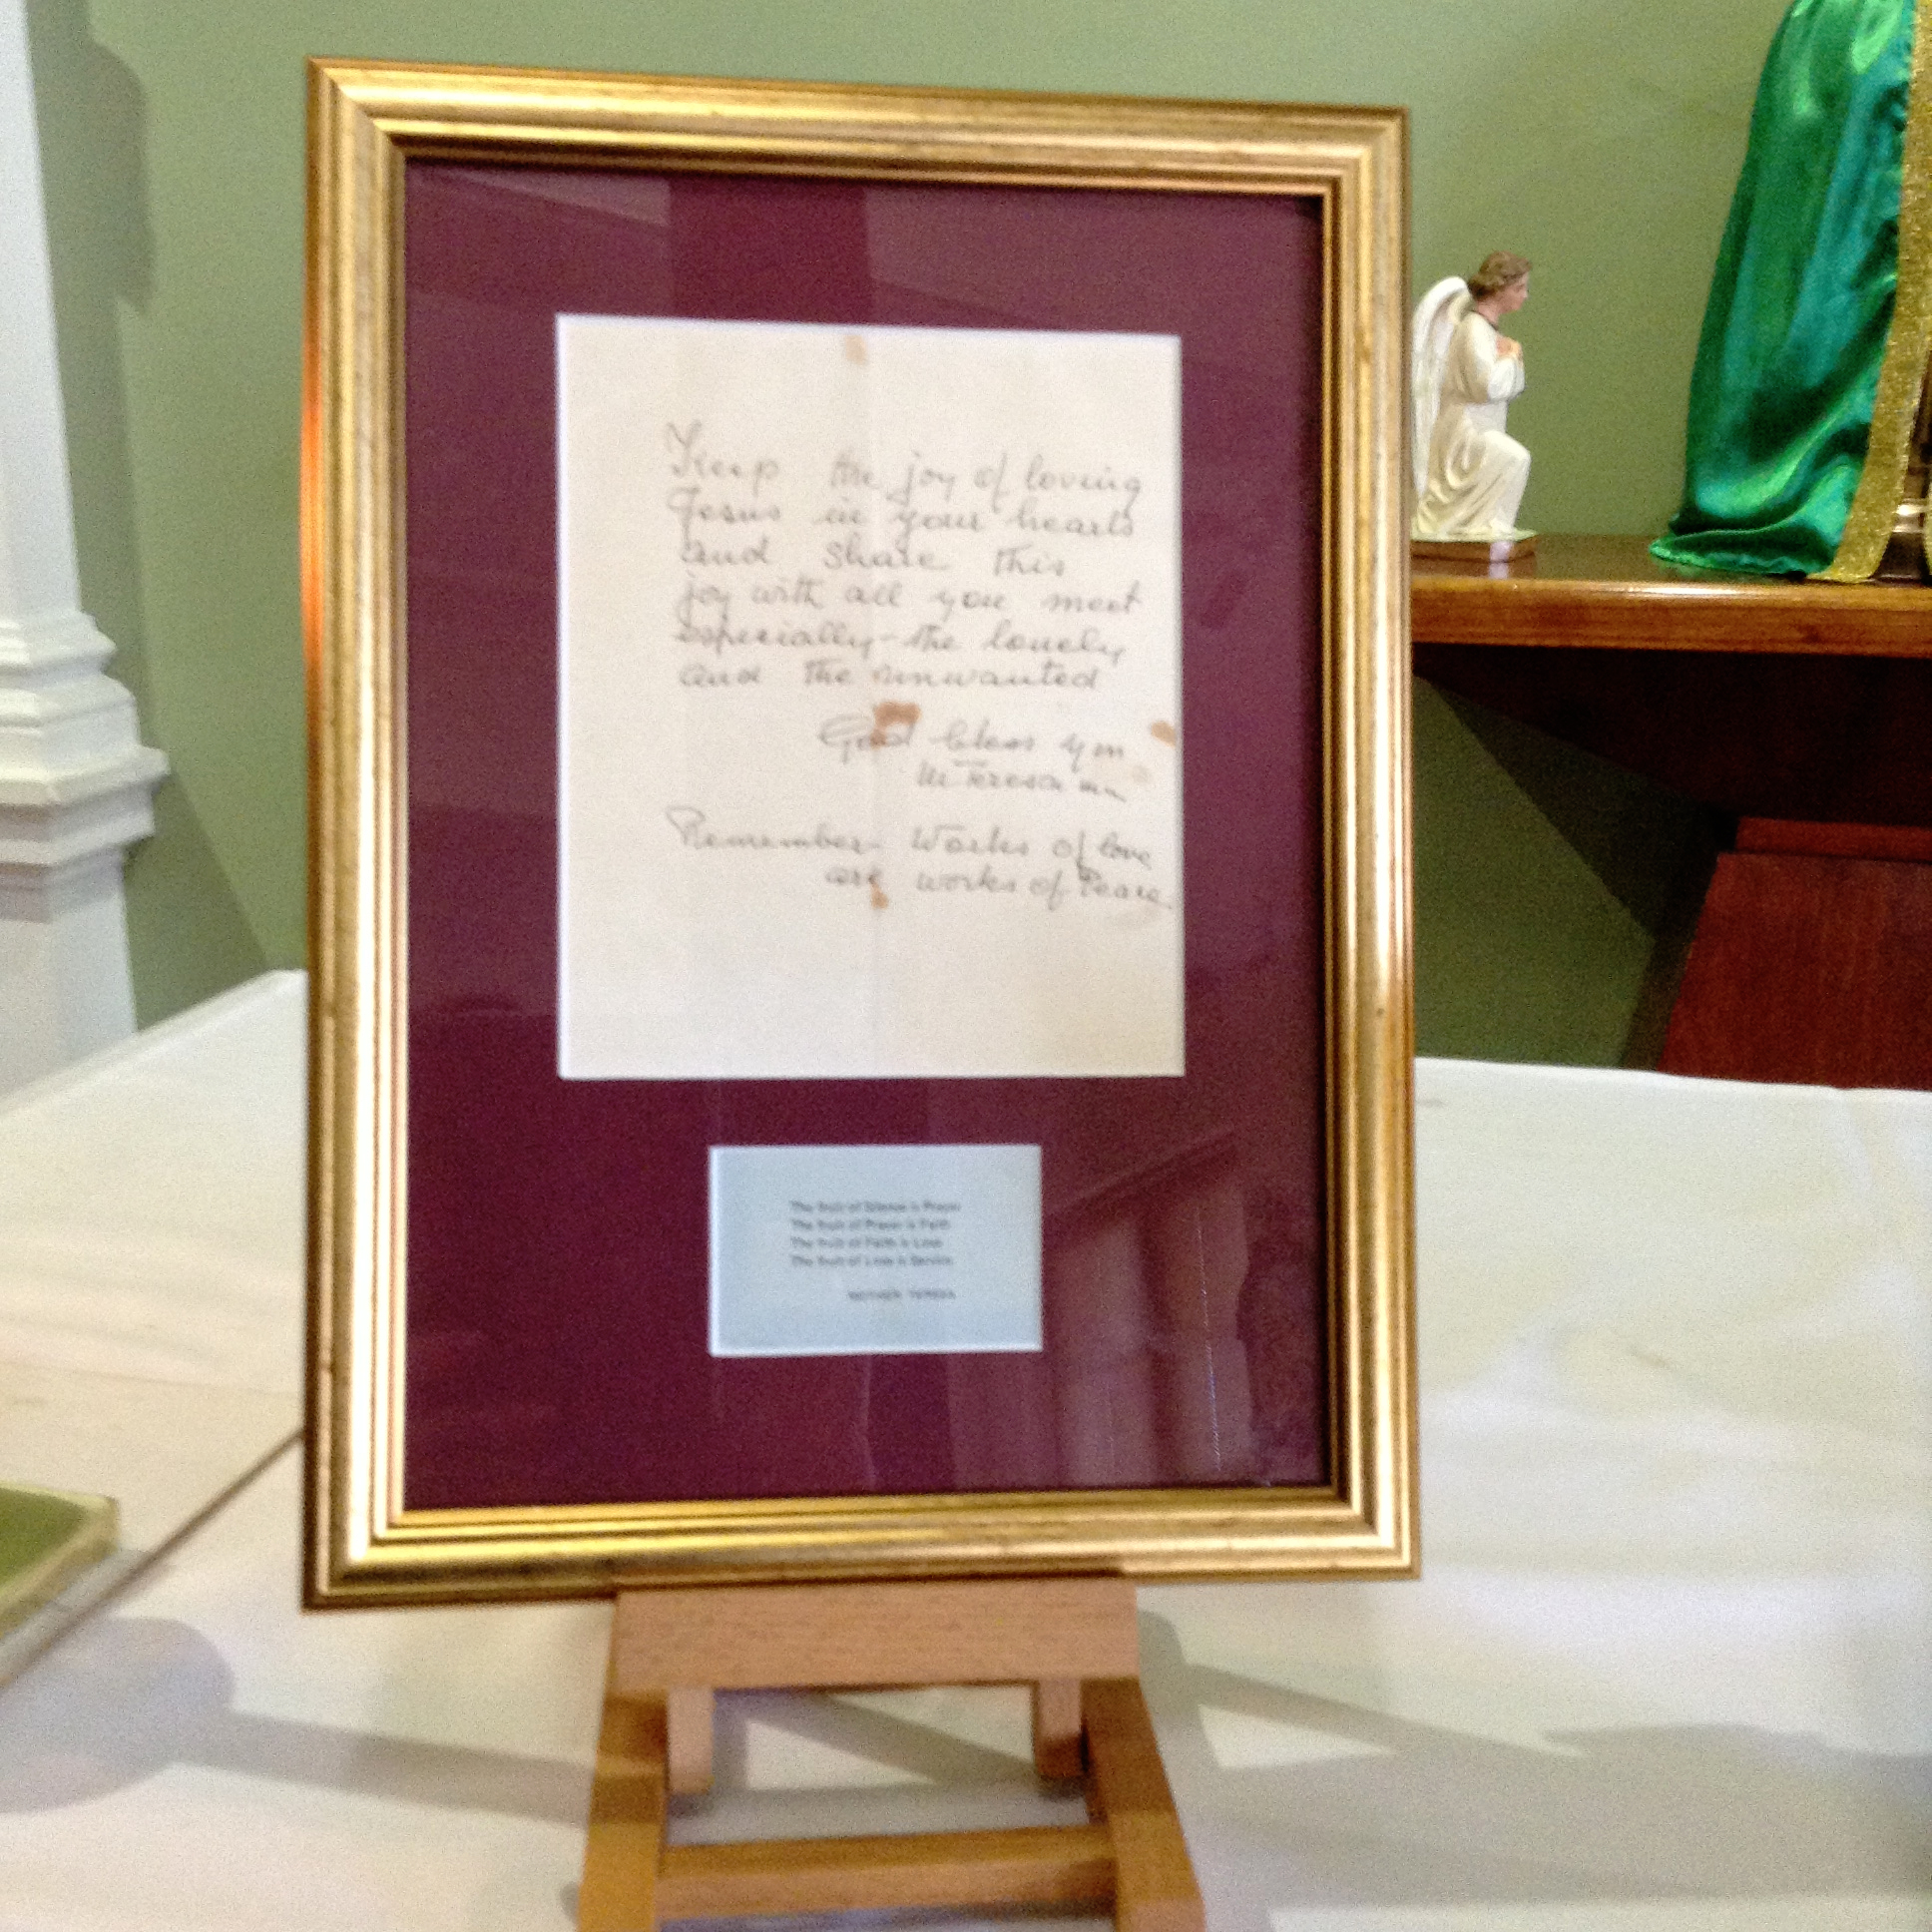 Keep the joy of loving
Jesus in your hearts
and share this
joy with all you meet
especially - the lonely
and the unwanted
God bless you
M Teresa mc
Remember - Works of love
are works of Peace
The fruit of Silence is Prayer
The fruit of Prayer is Faith
The fruit of Faith is Love
The fruit of Love is Service
MOTHER TERESA